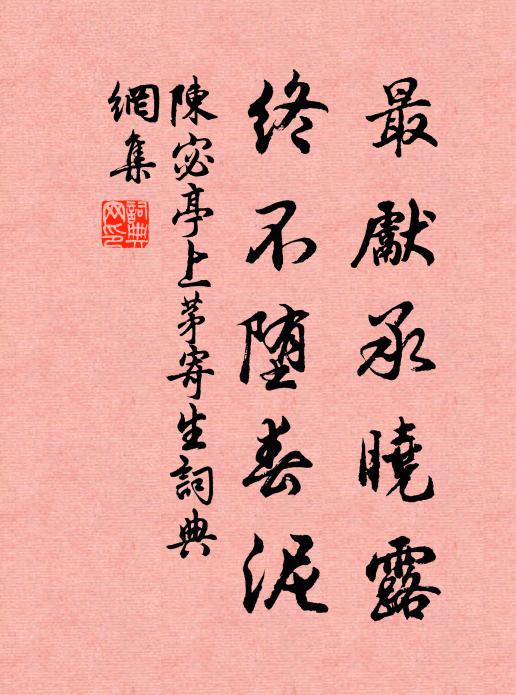 最獻承曉露
終不堕春泥
陳宓亭上茅寄生詞典
網集
詞典網印